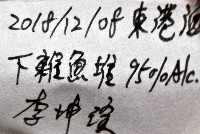 2018/12/08 東港漁
下雜魚堆 95% Alc.
李坤瑄